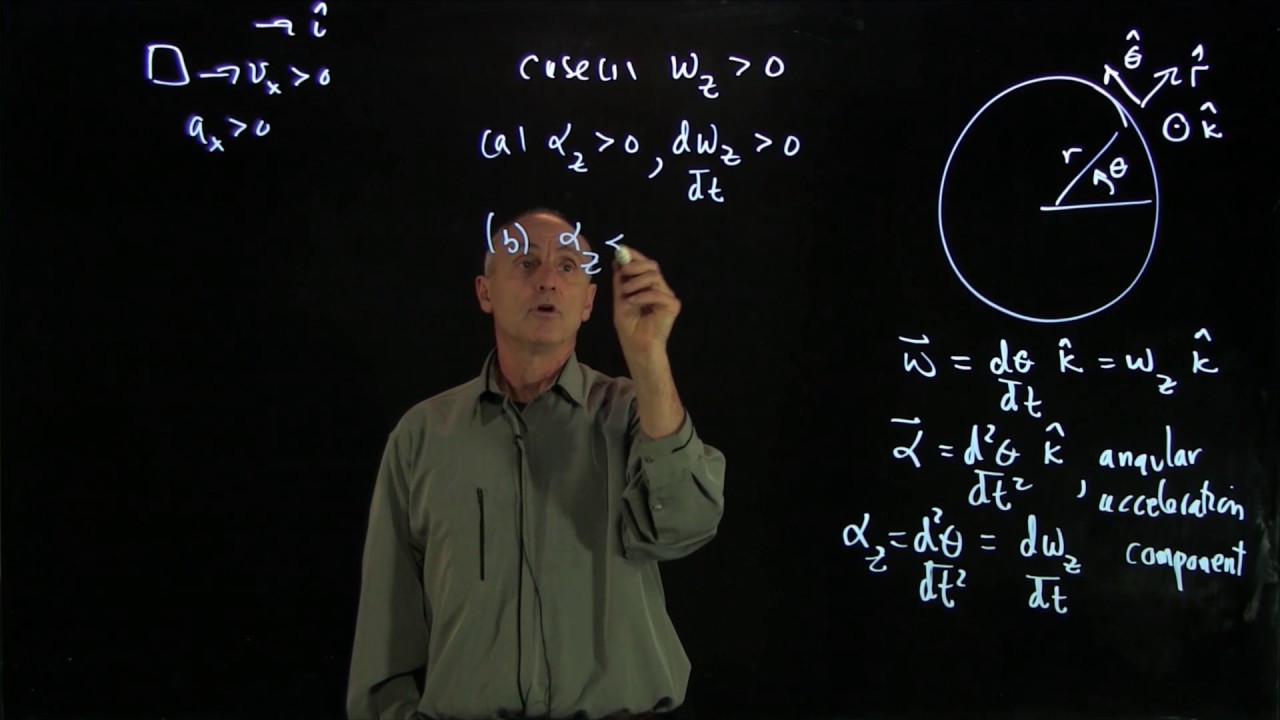 → î
→ vₓ > 0
aₓ > 0
case (1) ω_z > 0
(a) α_z > 0, dω_z/dt > 0
(b) α_z <
θ̂
r̂
k̂
r
θ
ω⃗ = dθ/dt k̂ = ω_z k̂
α⃗ = d²θ/dt² k̂, angular
acceleration
α_z = d²θ/dt² = dω_z/dt component